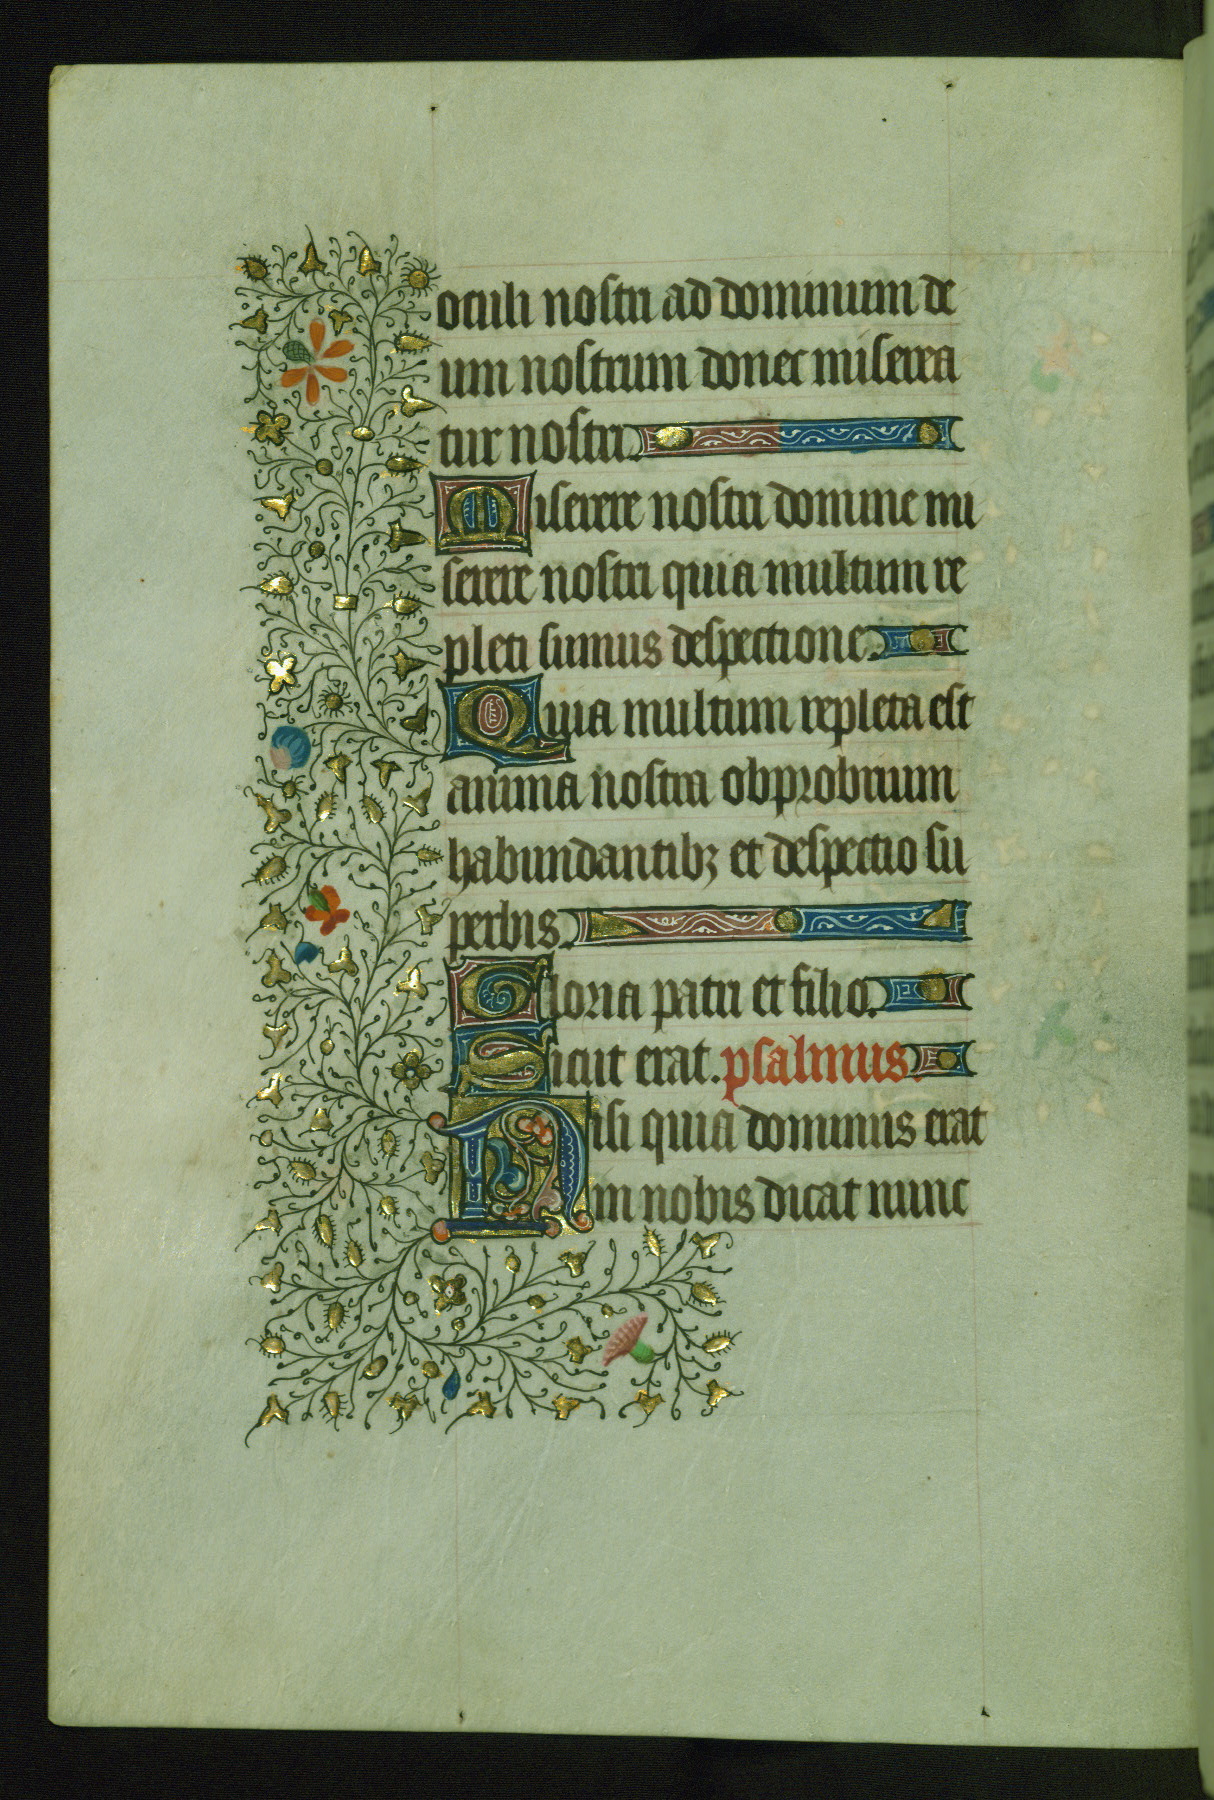 oculi nostri ad dominum de
um nostrum donec miserea
tur nostri.
Miserere nostri domine mi
serere nostri quia multum re
pleti sumus despectione.
Quia multum repleta est
anima nostra obprobrium
habundantibꝫ et despectio su
perbis.
Gloria patri et filio.
Sicut erat. psalmus.
Nisi quia dominus erat
in nobis dicat nunc